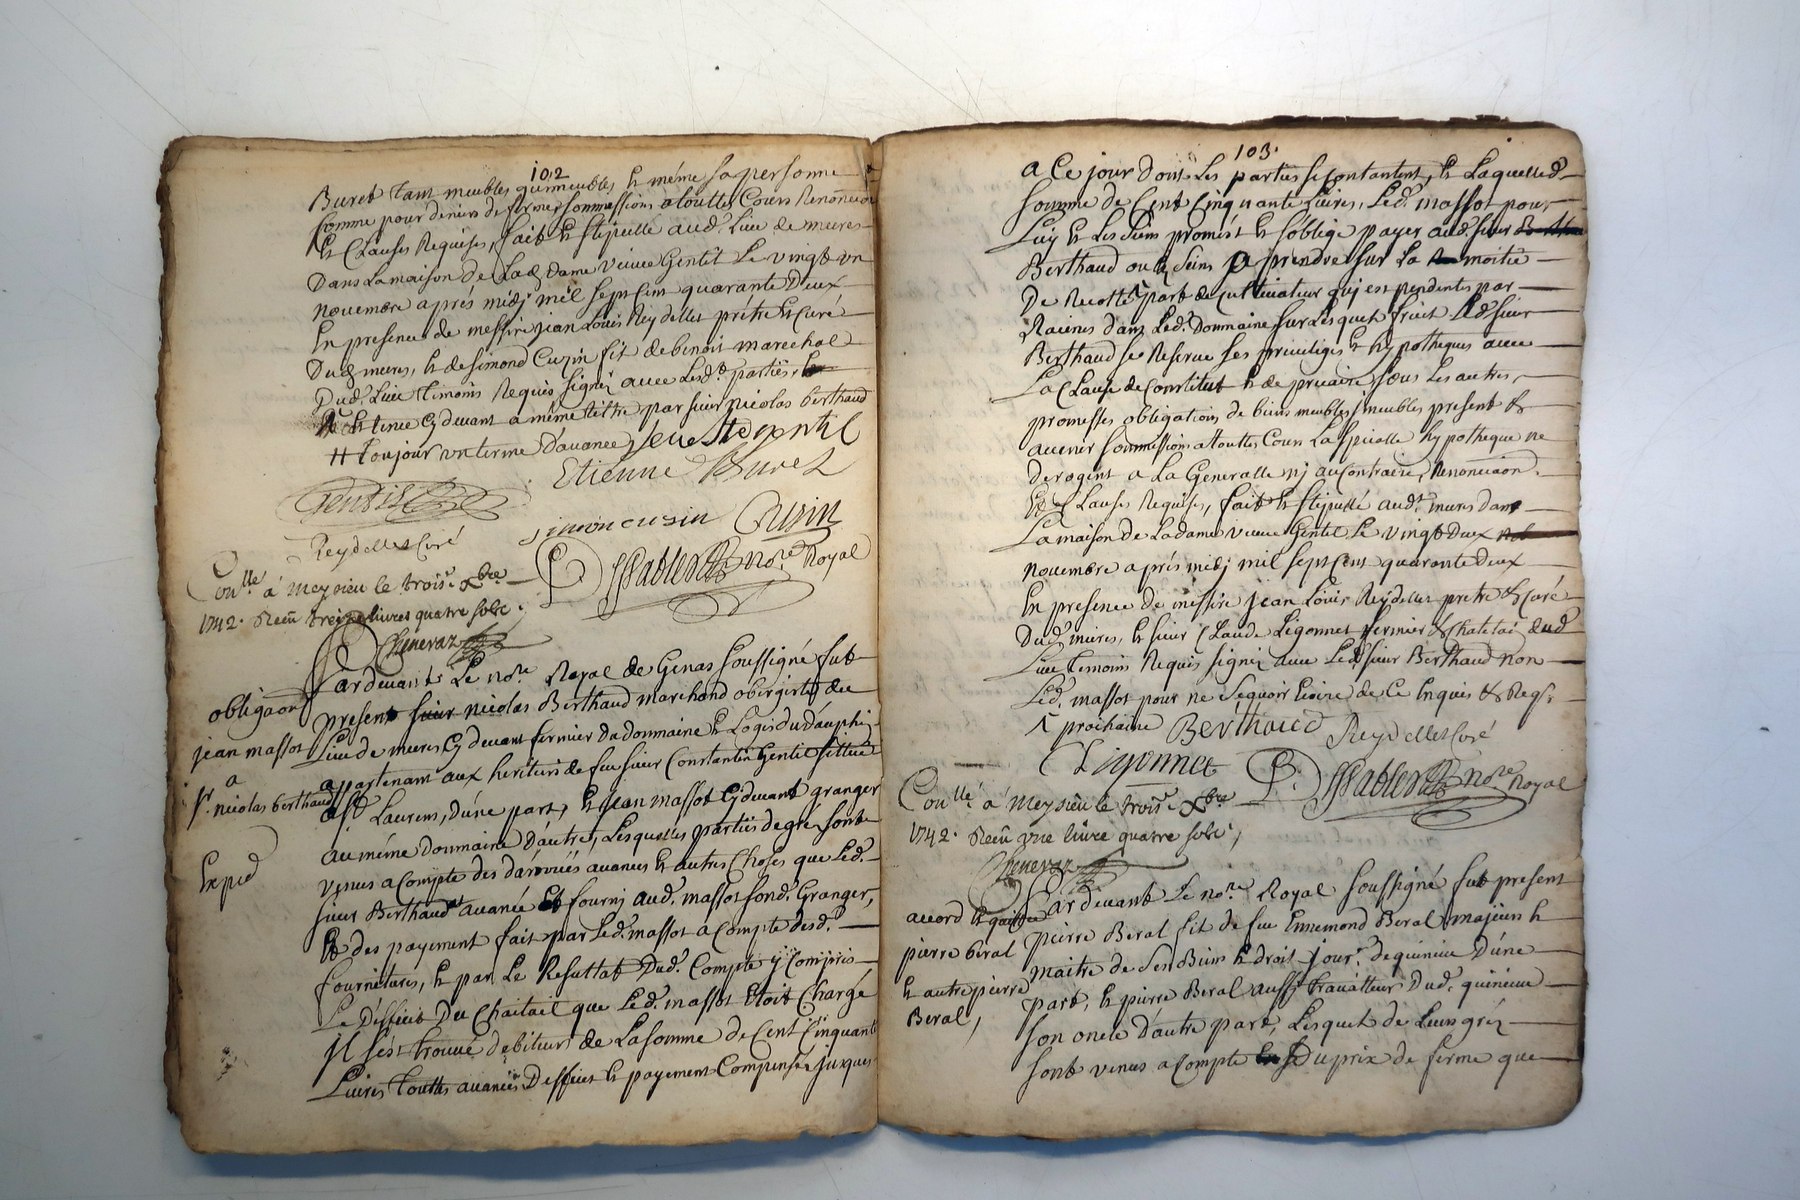 102
Buret tant meubles qu'immeubles et même sa personne
comme pour deniers de ferme, sommissions a touttes Cours Renonciaon
et Clauses Requises, fait et stipullé aud. Lieu de mures
Dans La maison de Lad. dame veuve Gentil Le vingt un
novembre aprés midj mil sept Cent quarante Deux
En presence de messire jean Louis Reydellet prétre et Curé
Dud. mures, et de simond Cuzin fit de benoit marechal
Dud. Lieu temoins Requis signéz avec Lesd. parties
et tenue Cydevant a méme tittre par sieur nicolas berthaud
# toujour un terme d'avance veuve Gentil
Etienne Buret
Gentil
simon cusin Cusin
Reydellet Curé
Pssablerd no.re Royal
Con.llé à Meysieu le trois.e xbre
1742. Reçû treize livres quatre sols.
Chenevaz
Pardevant Le no.re Royal de Genas soussigné fut
obligaon
present sieur nicolas Berthaud marchand obergiste du
jean massot
Lieu de mures Cydevant fermier da doumaine et Logis du dauphin
a
appartenant aux heritiers de feu sieur Constantin Gentil sittué
sr. nicolas berthaud
a st Laurens, d'une part, et jean massot Cydevant granger
au méme doumaine d'autre, Lesquelles parties de gré sont
Expié
venus a Compte des danréés avances et autres Choses que Led.
sieur Berthaud avancé et fournj aud. massot sond. Granger,
et des payement fait par Led. massot a Compte desd.
fournitures, et par Le Resultat Dud. Compte y Compris
Le Défficit Du Chaitail que Led. massot étoit Chargé
jl s'est trouvé debiteur de La somme de Cent Cinquante
Livres touttes avances Defficit et payement Compensés jusques
103.
a Ce jour dont Les parties se Contantent, et Laquelle d.
somme de Cent Cinquante Livres, Led. massot pour
Luy et Les siens promést et s'oblige payer aud. sieur
Berthaud ou es siens a prendre sur La moitié
De Recolte part de Cultivateur quj est pendente par
Racines dans Led. Doumaine sur Lesquel fruit Led sieur
Berthaud se Reserve ses priviliges et hypotheques avec
La Clause de Constitut et de precaire sous Les autres
promesses obligations de biens meubles jmeubles present et
avenir sommissions a touttes Cours La specialle hypotheque ne
derogent a La Generalle nj au Contraire, Renonciaon
et Clause Requises, fait et stipullé aud.t mures dans
La maison de La dame veuve Gentil Le vingt deux
novembre aprés midj mil sept Cent quarante deux
En presence de messire jean Louis Reydellet pretre et Curé
Dud. mures, et sieur Claude Ligonnet fermier et Chatelai dud
Lieu temoins Requis signéz avec Led sieur Berthaud non
Led. massot pour ne sçavoir Ecrire de Ce Enquis et Req.s
prochaine Berthaud Reydellet Curé
Ligonnet
Pssablerd no.re Royal
Con.llé à Meysieu le trois.e xbre
1742. Reçû une livre quatre sols,
Chenevaz
Pardevant Le no.re Royal soussigné fut present
accord et quittce
pierre Beral fit de feu Ennemond Beral majeur et
pierre beral
maitre de ses Biens et droit jour.r de quinieu D'une
et autre pierre
part, et pierre Beral aussy travailleur Dud. quinieu
Beral,
son oncle d'autre part, Lesquel de Leur gréz
sont venus a Compte du prix de ferme que